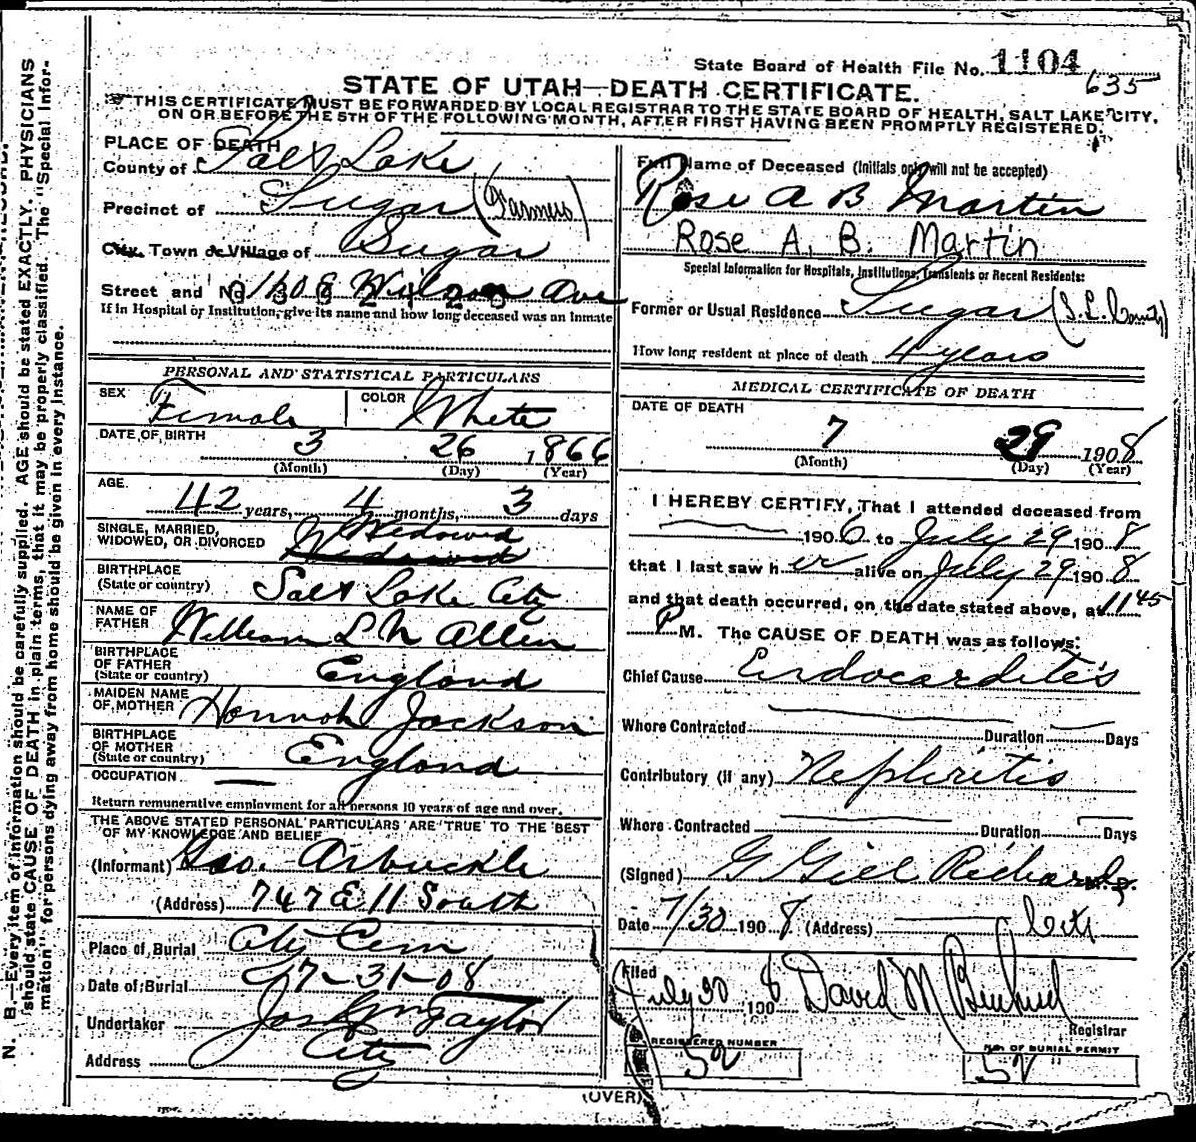 State Board of Health File No. 1104
635
STATE OF UTAH—DEATH CERTIFICATE.
THIS CERTIFICATE MUST BE FORWARDED BY LOCAL REGISTRAR TO THE STATE BOARD OF HEALTH, SALT LAKE CITY,
ON OR BEFORE THE 5TH OF THE FOLLOWING MONTH, AFTER FIRST HAVING BEEN PROMPTLY REGISTERED.
N. B.—Every item of information should be carefully supplied. AGE should be stated EXACTLY. PHYSICIANS
should state CAUSE OF DEATH in plain terms, that it may be properly classified. The "Special Infor-
mation" for persons dying away from home should be given in every instance.
PLACE OF DEATH
County of Salt Lake
Precinct of Sugar (Farmers)
City, Town or Village of Sugar
Street and No. Wilson Ave
If in Hospital or Institution, give its name and how long deceased was an inmate
PERSONAL AND STATISTICAL PARTICULARS
SEX Female COLOR White
DATE OF BIRTH 3 26 1866
(Month) (Day) (Year)
AGE 42 years, 4 months, 3 days
SINGLE, MARRIED, WIDOWED, OR DIVORCED Widowed
BIRTHPLACE (State or country) Salt Lake City
NAME OF FATHER William L N Allen
BIRTHPLACE OF FATHER (State or country) England
MAIDEN NAME OF MOTHER Hannah Jackson
BIRTHPLACE OF MOTHER (State or country) England
OCCUPATION —
Return remunerative employment for all persons 10 years of age and over.
THE ABOVE STATED PERSONAL PARTICULARS ARE TRUE TO THE BEST
OF MY KNOWLEDGE AND BELIEF
(Informant) Geo. Arbuckle
(Address) 747 E 11 South
Place of Burial City Cem
Date of Burial 7-31-08
Undertaker Jos Wm Taylor
Address City
Full Name of Deceased (Initials only will not be accepted)
Rose A B Martin
Rose A. B. Martin
Special Information for Hospitals, Institutions, Transients or Recent Residents:
Former or Usual Residence Sugar (S.L. County)
How long resident at place of death 4 years
MEDICAL CERTIFICATE OF DEATH
DATE OF DEATH
7 29 1908
(Month) (Day) (Year)
I HEREBY CERTIFY, That I attended deceased from
1906 to July 29 1908
that I last saw her alive on July 29 1908
and that death occurred, on the date stated above, at 11 45
P M. The CAUSE OF DEATH was as follows:
Chief Cause Endocarditis
Where Contracted Duration Days
Contributory (if any) Nephritis
Where Contracted Duration Days
(Signed) G Gill Richards M. D.
Date 7/30 1908 (Address) City
Filed
July 30 1908 David M
Registrar
REGISTERED NUMBER
52
NO. OF BURIAL PERMIT
52
(OVER)